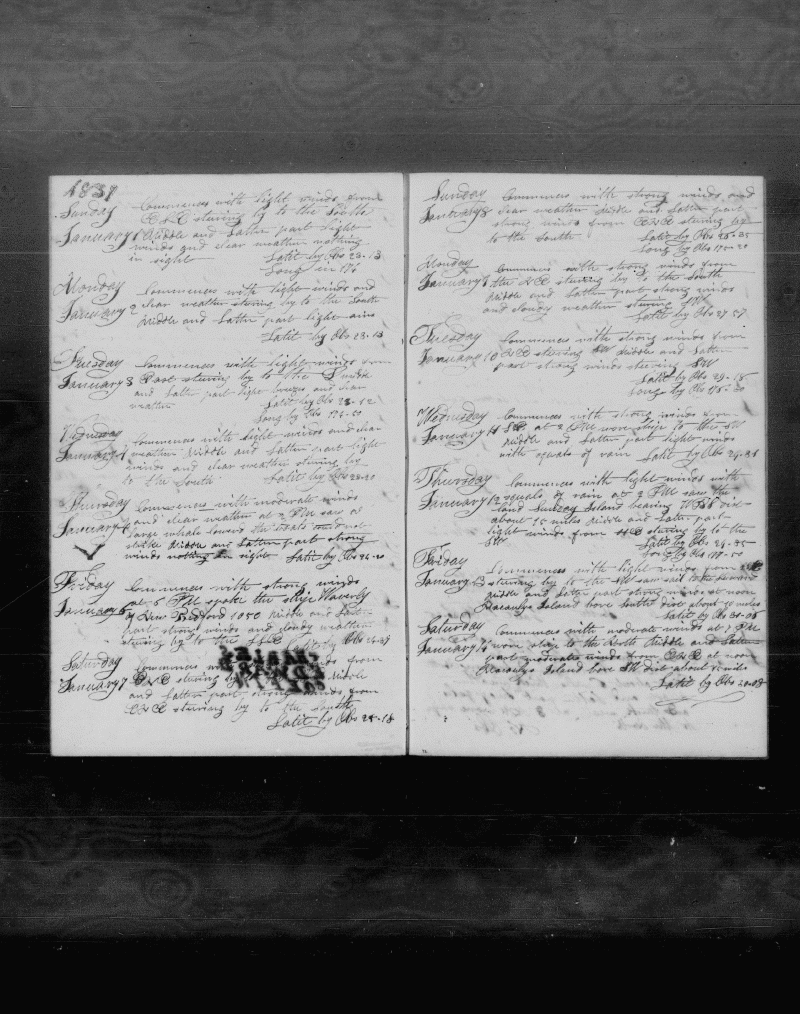 1837
Sunday Commences with light winds from
E S E steering by to the South
January 1 Middle and Latter part light
winds and clear weather nothing
in sight Latit by Obs 23-13
Long in 176
Monday Commences with light winds and
clear weather steering by to the South
January 2 Middle and Latter part light airs
Latit by Obs 23-13
Tuesday Commences with light winds from
January 3 East steering by to the S Middle
and Latter part light breezes and clear
weather Latit by Obs 23-12
Long by Obs 176-50
Wednesday Commences with light winds and clear
January 4 weather Middle and Latter part light
winds and clear weather steering by
to the South Latit by Obs 23-20
Thursday Commences with moderate winds
and clear weather at 2 PM saw a
January 5 large whale lowerd the boats
strike Middle and Latter part strong
winds nothing in sight Latit by Obs 24-20
Friday Commences with strong winds
at 5 PM spoke the ship Waverly
January 6 of New Bedford 1050 Middle and Latter
part strong winds and cloudy weather
steering by to the Obs 24-29
Saturday Commences from
January 7 ENE steering by Middle
and Latter part strong winds from
ENE steering by to the south
Latit by Obs 24-18
Sunday Commences with strong winds and
January 8 clear weather Middle and Latter part
strong winds from ENE steering by
to the South Latit by Obs 25-35
Long by Obs 175-20
Monday Commences with strong winds from
January 9 the NE steering by to the South
Middle and Latter part strong winds
and cloudy weather steering SW
Latit by Obs 27-57
Tuesday Commences with strong winds from
January 10 ENE steering SW Middle and Latter
part strong winds steering SW
Latit by Obs 29-18
Long by Obs 178-30
Wednesday Commences with strong winds from
January 11 at 2 PM wore ship to the SW
Middle and Latter part light winds
with squals of rain Latit by Obs
Thursday Commences with light winds with
January 12 squals of rain at 2 PM saw the
land Sunday Island bearing WSW dist
about 25 miles Middle and Latter part
light winds from NE steering by to the
SW Latit by Obs 29-35
Long by Obs
Friday Commences with light winds from
January 13 steering by to the SW saw sail to the
Middle and Latter part strong winds at noon
Island bore South dist about 30 miles
Latit by Obs
Saturday Commences with moderate winds at 7 PM
January 14 wore ship to the North Middle and Latter
part moderate winds from ENE at noon
Island bore SW dist about miles
Latit by Obs